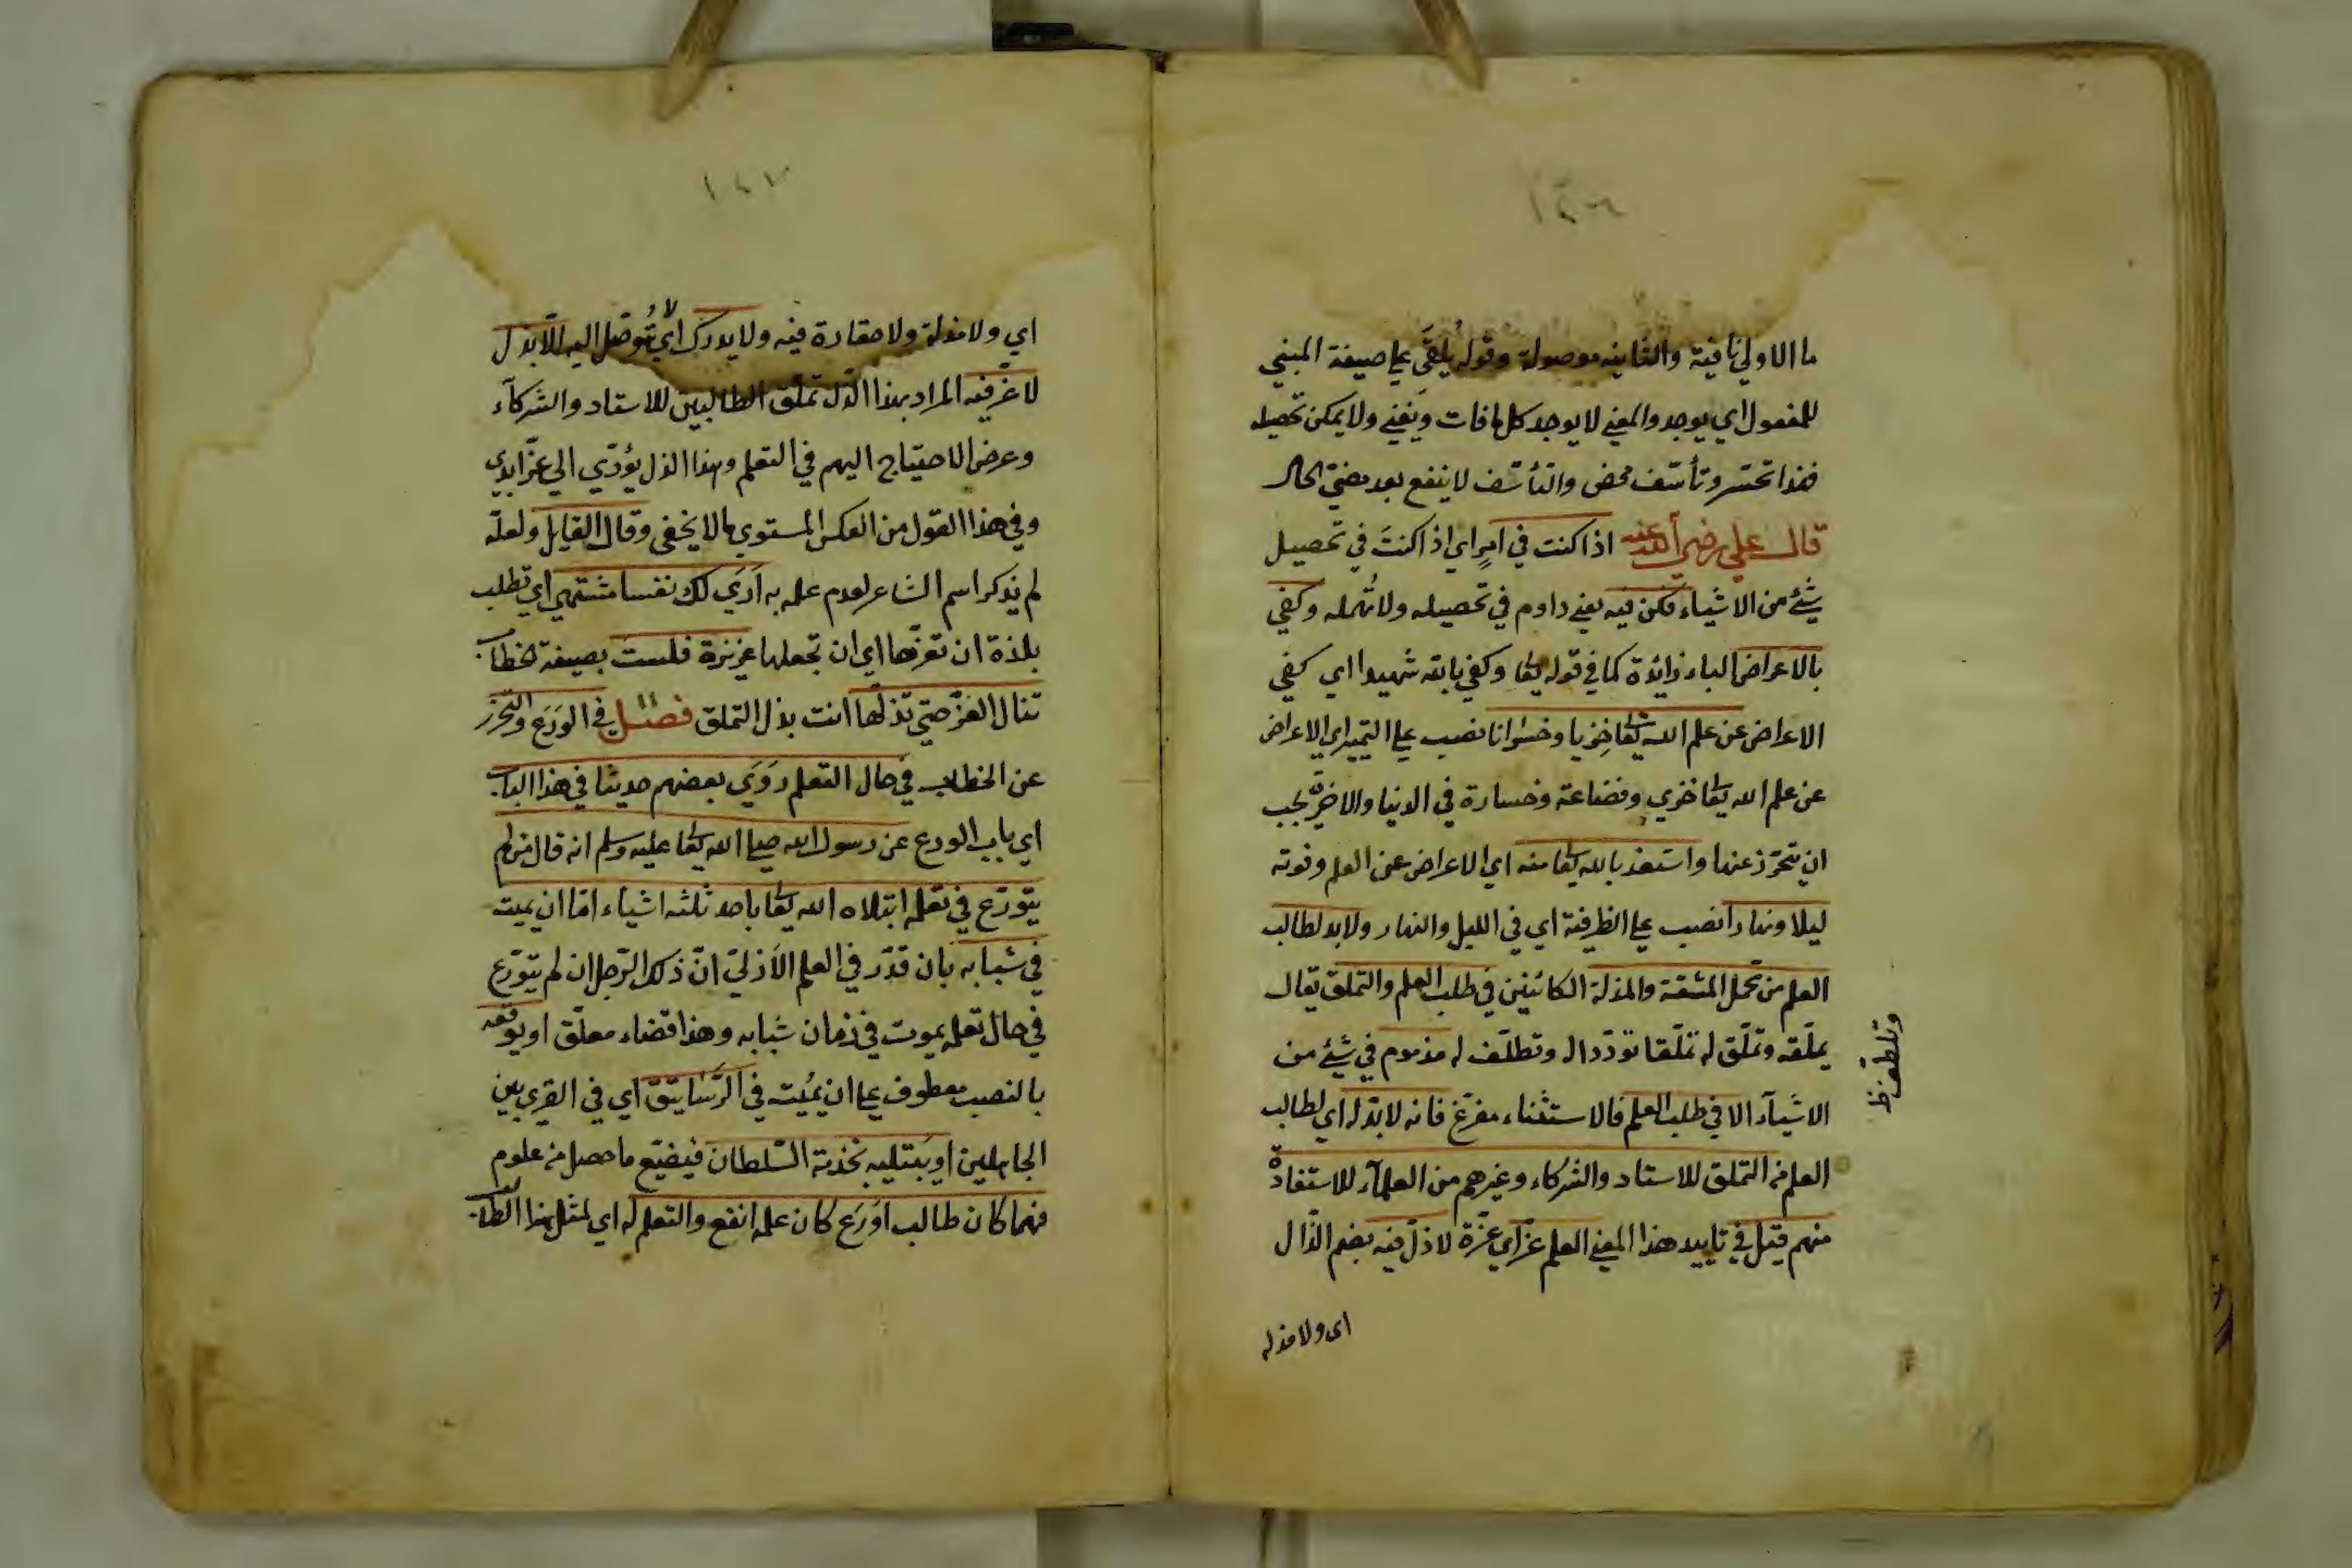 ما الاولي نافية والثانيه موصولة وقوله يُلقَي علي صيغة المبني
للمفعول اي يوجد والمعني لا يوجد كل ما فات ويَفني ولا يمكن تحصيله
فهذا تحسّر وتأسّف محض والتأسّف لا ينفع بعد مضيّ الحال
قال علي رضي الله عنه اذا كنت في امرٍ اي اذا كنتَ في تحصيل
شئ من الاشياء فكن فيه يعني داوم في تحصيله ولا تُهمله وكفي
بالاعراض الباء زائدة كما في قوله تعا وكفي بالله شهيدا اي كفي
الاعراض عن علم الله تعا خِزيا وخسرانا نصب علي التمييز اي الاعراض
عن علم الله تعا خزي وفضاعة وخسارة في الدنيا والاخرة يجب
ان يتحرّز عنها واستعذ بالله تعا منه اي الاعراض عن العلم وفوته
ليلا ونهارا نصب علي الظرفية اي في الليل والنهار ولابد لطالب
العلم من تحمل المشقة والمذلة الكائنين في طلب العلم والتملق يقال
يملّقه وتملّق له تملّقا تودّد اله وتطلّف له مذموم في شئ من
وتلطف ظ
الاشيآء الا في طلب العلم فالاستثناء مفرّغ فانه لابدّ له اي لطالب
العلم من التملق للاستاد والشركاء وغيرهم من العلمآء للاستفادة
منهم قيل في تاييد هذا المعني العلم عزّ اي عزّة لا ذلّ فيه بضم الذّال
اى ولا مذلة
اي ولا مذلة ولا حقارة فيه ولا يدرك اي لا يُتوصّل اليه الّا بذل
لا عزّ فيه المراد بهذا الذّل تملّق الطالبين للاستاد والشركآء
وعرض الاحتياج اليهم في التعلم وهذا الذل يؤدّي الي عزّ ابدي
وفي هذا القول من العكس المستوي ما لا يخفى وقال القايل ولعلّه
لم يذكر اسم الشاعر لعدم علمه به اَرَي لك نفسا مشتهي اي تطلب
بلذة ان تعزّها اي ان تجعلها عزيزة فلستَ بصيغة الخطاب
تنال العزّ حتي تذلّها انت بذل التملق فصل في الوَرَع والتحرّز
عن الخطاب في حال التعلم رَوَي بعضهم حديثا في هذا الباب
اي باب الورع عن رسول الله صلي الله تعا عليه وسلم انه قال من لم
يتورّع في تعلمه ابتلاه الله تعا باحد ثلثه اشياء امّا ان يميت
في شبابه بان قدّر في العلم الاَزليّ انّ ذلك الرّجل ان لم يتورّع
في حال تعلمه يموت في زمان شبابه وهذا قضاء معلّق او يوقعه
بالنصب معطوف علي ان يُميت في الرّسَاتيق اي في القري بين
الجاهلين او يَبتليه بخدمة السّلطان فيضيّع ما حصل من علوم
فهما كان طالب اَورَع كان علمه انفع والتعلم له اي لمثل هذا الطالب